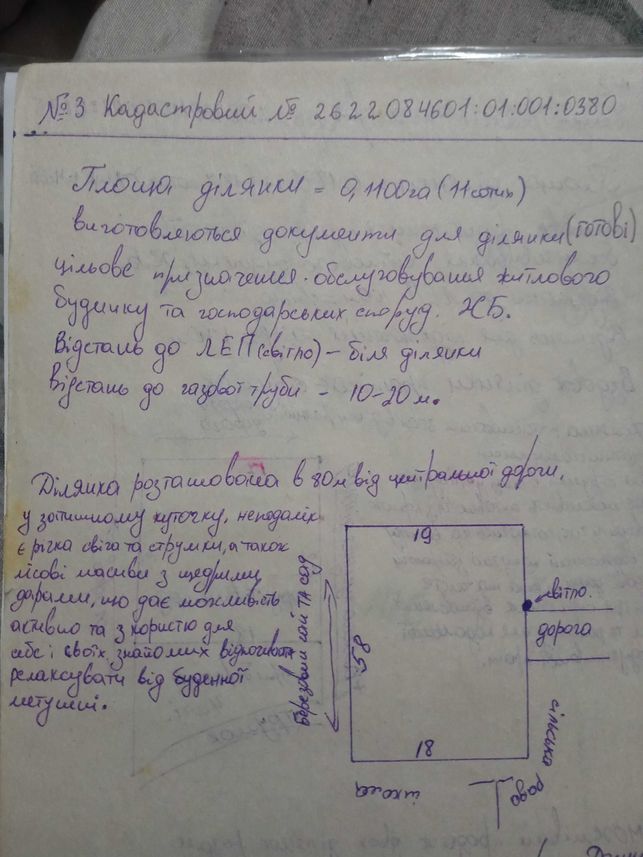 №3 Кадастровий № 2622084601:01:001:0380
Площа ділянки = 0,1100га (11соток)
виготовляються документи для ділянки (готові)
цільове призначення. обслуговування житлового
будинку та господарських споруд. ЖБ.
Відстань до ЛЕП (світло) – біля ділянки
Відстань до газової труби – 10-20м.
Ділянка розташована в 80м від центральної дороги,
у затишному куточку, неподалік
є річка свіга та струмки, а також
лісові масиви з щедрими
дарами, що дає можливість
активно та з користю для
себе і своїх знайомих відпочивати
релаксувати від буденної
метушні.
19
світло.
дорога
58
Березовий гай ТА сад
18
школа
сільська рада